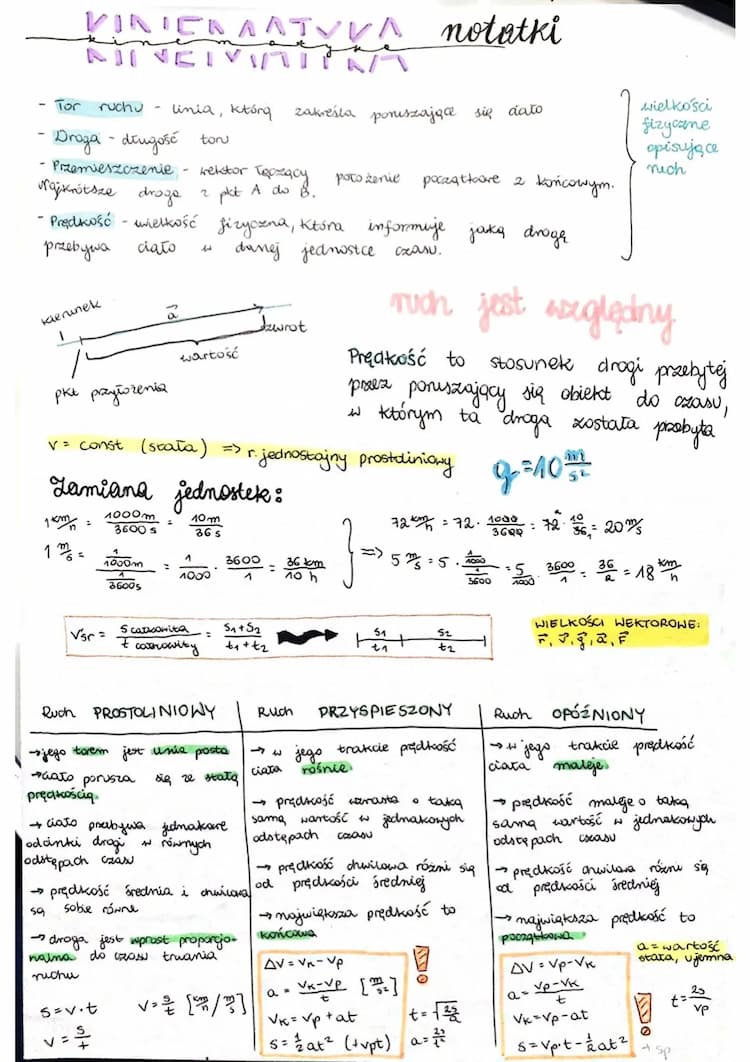 KINEMATYKA
kinematyka notatki
- Tor ruchu - linia, którą zakreśla poruszające się ciało
- Droga - długość toru
- Przemieszczenie - wektor łączący położenie początkowe z końcowym.
Najkrótsze droga z pkt A do B.
- Prędkość - wielkość fizyczna, która informuje jaką drogę
przebywa ciało w danej jednostce czasu.
wielkości
fizyczne
opisujące
ruch
kierunek
a
zwrot
wartość
pkt przyłożenia
ruch jest względny
Prędkość to stosunek drogi przebytej
przez poruszający się obiekt do czasu,
w którym ta droga została przebyta
v = const (stała) => r. jednostajny prostoliniowy
g = 10 m/s²
Zamiana jednostek:
1 km/h = 1000m/3600s = 10m/36s
1 m/s = (1/1000 m)/(1/3600 s) = 1/1000 · 3600/1 = 36 km/10 h
=> 72 km/h = 72 · 1000/3600 = 72 · 10/36 = 20 m/s
5 m/s = 5 · (1/1000)/(1/3600) = 5/1000 · 3600/1 = 36/2 = 18 km/h
Vśr = s całkowita/t całkowity = s1+s2/t1+t2
s1 s2
t1 t2
WIELKOŚCI WEKTOROWE:
r, v, g, a, F
Ruch PROSTOLINIOWY
→ jego torem jest linia posta
→ ciało porusza się ze stałą
prędkością
→ ciało przebywa jednakowe
odcinki drogi w równych
odstępach czasu
→ prędkość średnia i chwilowa
są sobie równe
→ droga jest wprost proporcjo-
nalna do czasu trwania
ruchu
s = v·t v = s/t [km/h / m/s]
v = s/t
Ruch PRZYSPIESZONY
→ w jego trakcie prędkość
ciała rośnie
→ prędkość wzrasta o taką
samą wartość w jednakowych
odstępach czasu
→ prędkość chwilowa różni się
od prędkości średniej
→ największa prędkość to
końcowa
ΔV = Vk - Vp
a = Vk-Vp/t [m/s²]
Vk = Vp + at
s = 1/2 at² (+vpt)
!
t = √2s/a
a = 2s/t²
Ruch OPÓŹNIONY
→ w jego trakcie prędkość
ciała maleje
→ prędkość maleje o taką
samą wartość w jednakowych
odstępach czasu
→ prędkość chwilowa różni się
od prędkości średniej
→ największa prędkość to
początkowa
a = wartość
stała, ujemna
ΔV = Vp - Vk
a = Vp-Vk/t
Vk = Vp - at
s = Vp·t - 1/2 at²
!
t = 2s/Vp